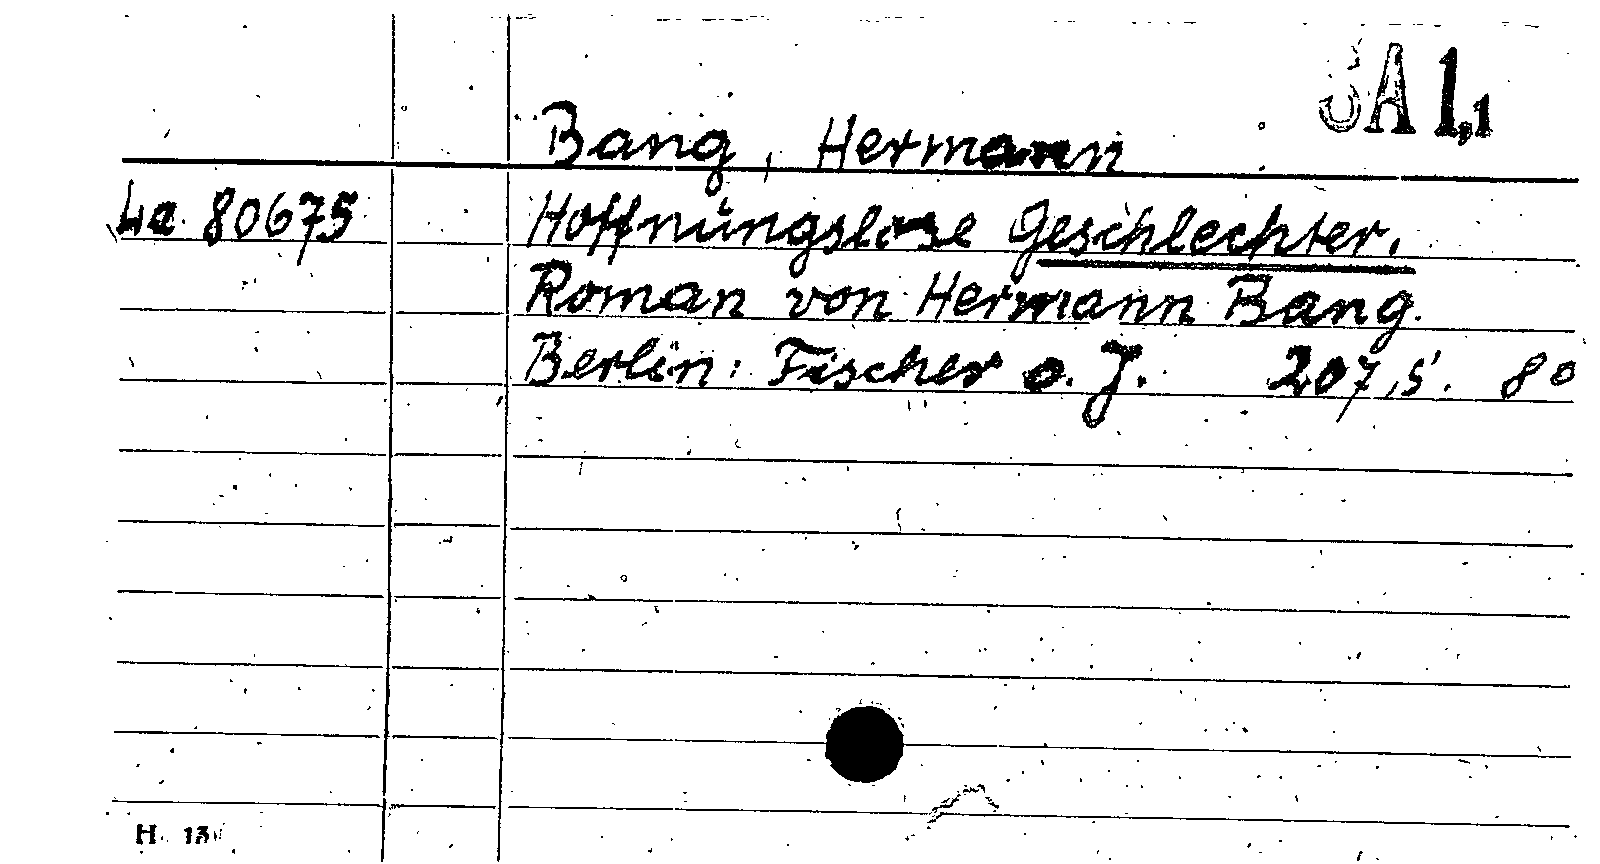 SA 1,1
Bang, Hermann
4a 80675
Hoffnungslose Geschlechter.
Roman von Hermann Bang.
Berlin: Fischer o. J. 207, S. 80
H. 13